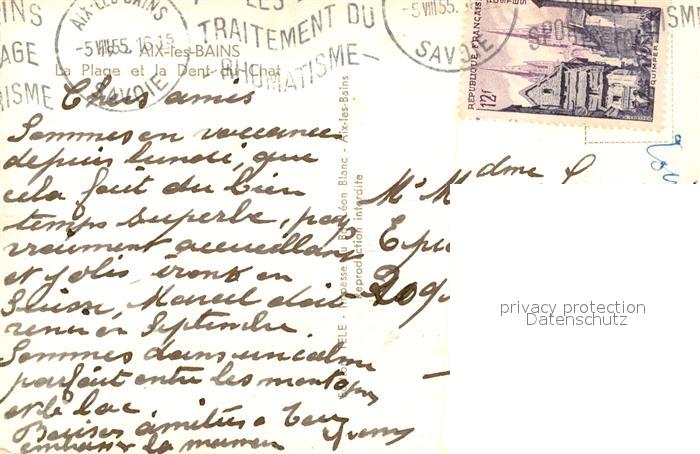 AIX-LES BAINS
-5 VIII 55. 16.15
SAVOIE
TRAITEMENT DU
RHUMATISME
-5 VIII 55.
SAVOIE
REPUBLIQUE FRANÇAISE
POSTES
12f
QUIMPER
AIX-les-BAINS
La Plage et la Dent du Chat
Chers amis
Sommes en vacances
depuis lundi, que
cela fait du bien
temps superbe, pays
vraiment accueillant
et jolis irons en
Suisse, Marcel doit
venir en Septembre
Sommes dans un calme
parfait entre les montagnes
et le lac
Baisers amitiés a tous
embrasser la maman
Impasse du Bd Léon Blanc - Aix-les-Bains
Reproduction interdite
Mr Mdme
privacy protection
Datenschutz